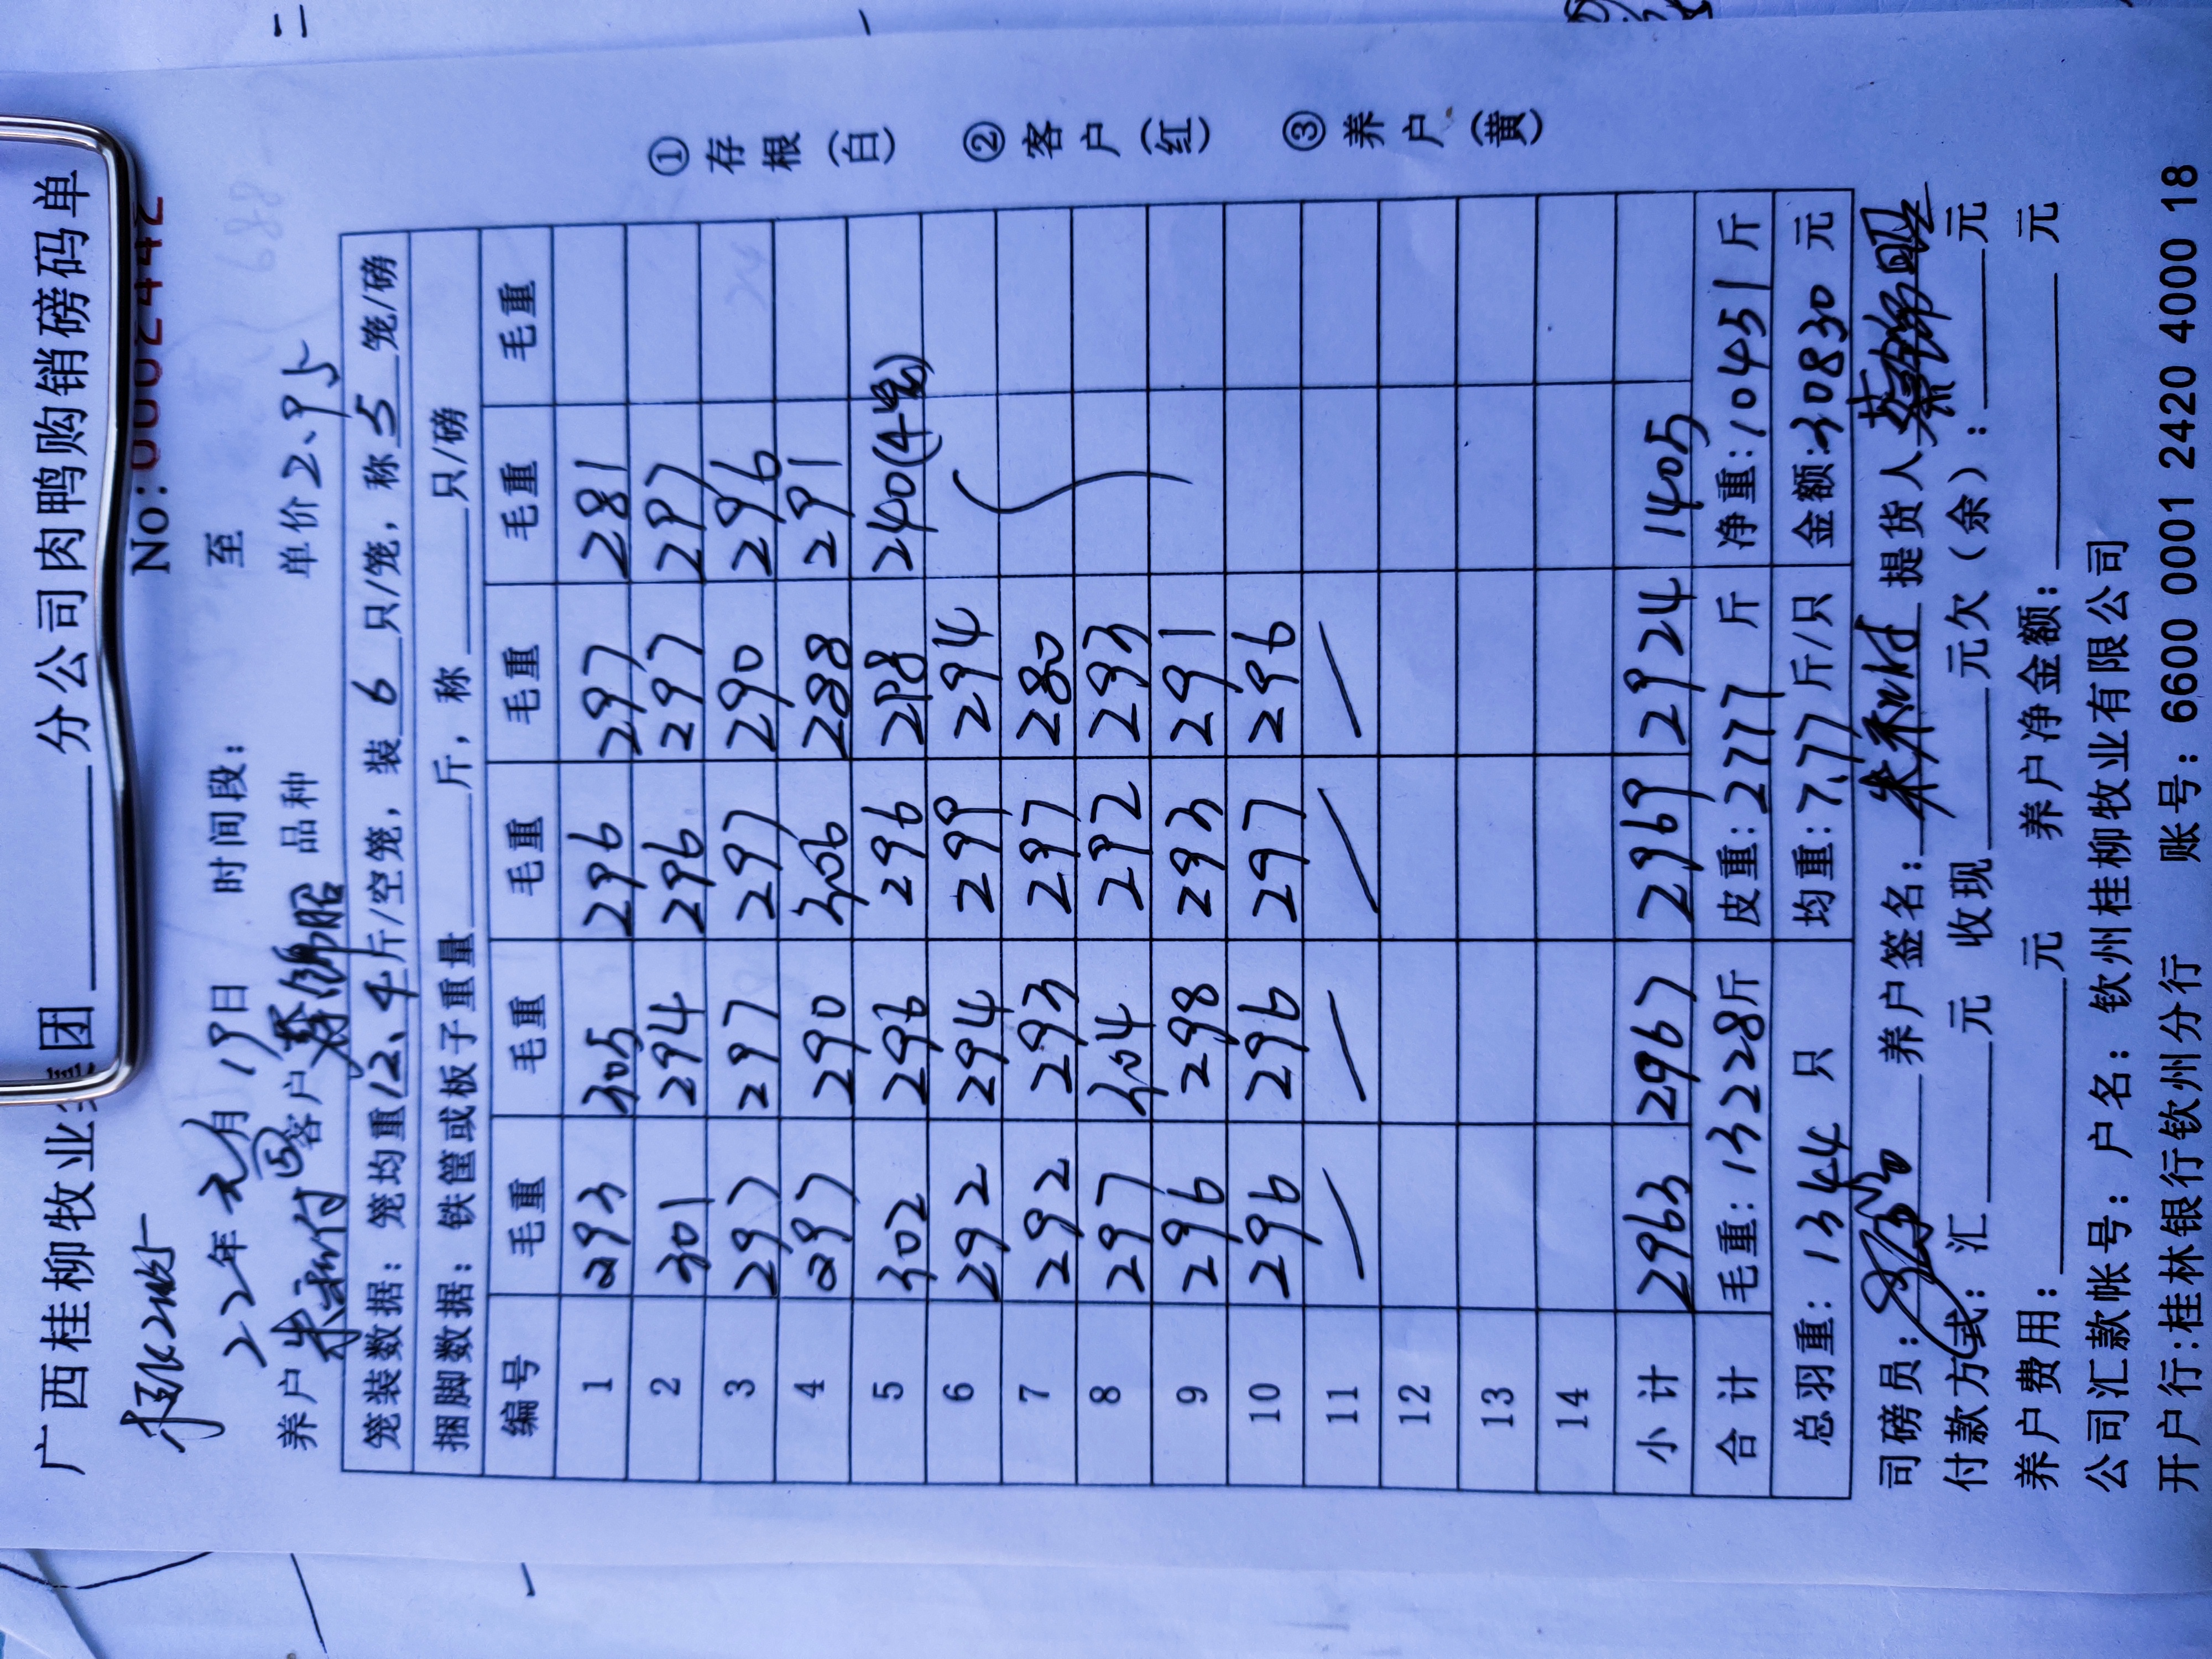 广西桂柳牧业集团 分公司肉鸭购销磅码单
No:0002442
22年元月19日 时间段: 至
养户 朱和付 ⑤ 客户 蔡锦昭 品种 单价 2.95
笼装数据: 笼均重 12.4 斤/空笼, 装 6 只/笼, 称 5 笼/磅
捆脚数据: 铁筐或板子重量 斤, 称 只/磅
编号 毛重 毛重 毛重 毛重 毛重 毛重
1 293 305 296 297 281
2 301 294 296 297 297
3 297 297 297 290 296
4 297 290 306 288 291
5 302 296 296 298 240(4笼)
6 292 294 299 294
7 292 293 297 280
8 297 304 292 293
9 296 298 293 291
10 296 296 297 296
11
12
13
14
小计 2963 2967 2969 2924 1405
合计 毛重: 13228斤 皮重: 2777 斤 净重: 10451 斤
总羽重: 1344 只 均重: 7.77 斤/只 金额: 30830 元
司磅员: 养户签名: 朱和付 提货人 蔡锦昭
付款方式: 汇 元 收现 元欠(余): 元
养户费用: 元 养户净金额: 元
公司汇款帐号: 户名: 钦州桂柳牧业有限公司
开户行:桂林银行钦州分行 账号: 6600 0001 2420 4000 18
①存根(白) ②客户(红) ③养户(黄)